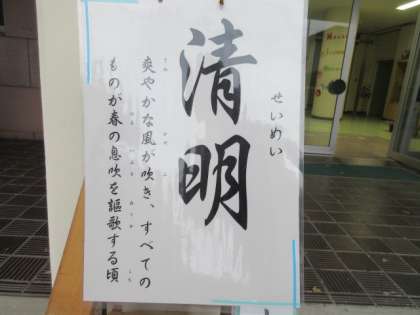 清明
せいめい
爽やかな風が吹き、すべての
ものが春の息吹を謳歌する頃